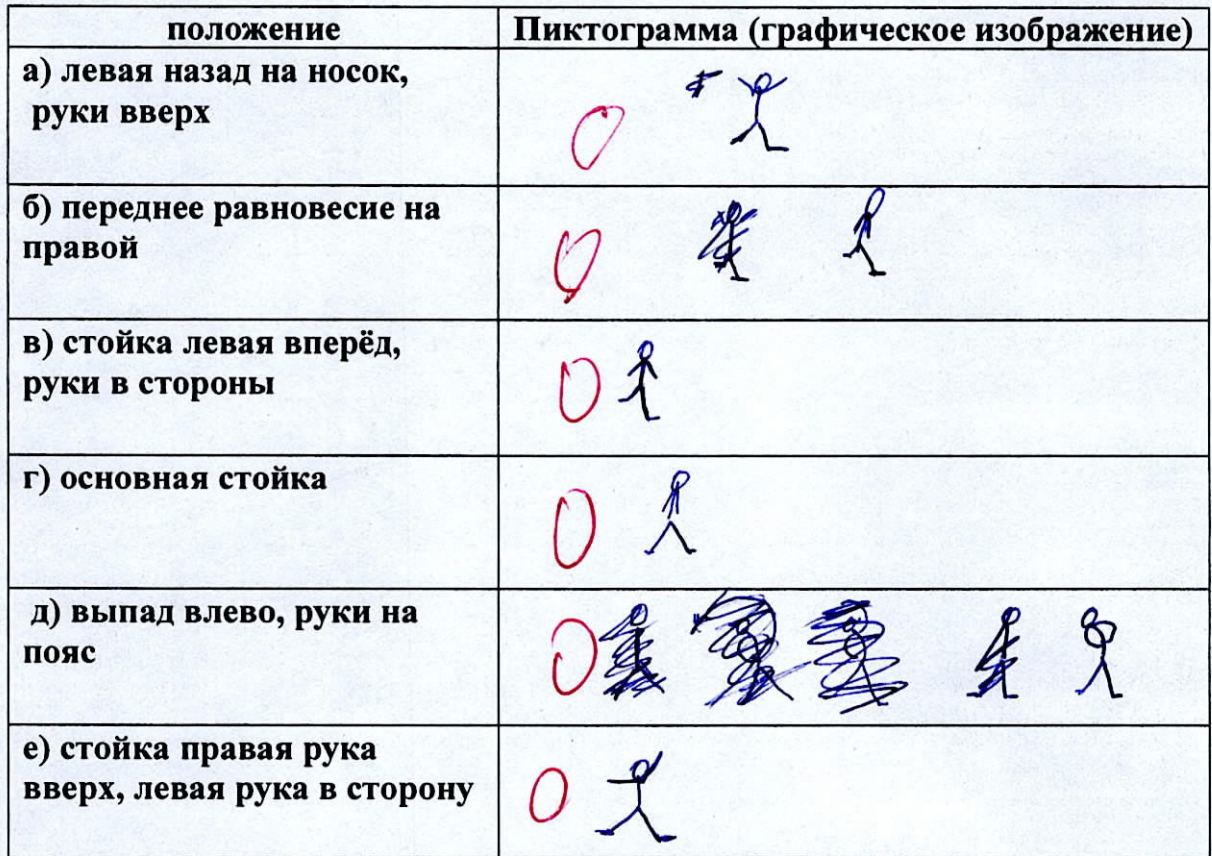 положение
Пиктограмма (графическое изображение)
а) левая назад на носок,
руки вверх
0
б) переднее равновесие на
правой
0
в) стойка левая вперёд,
руки в стороны
0
г) основная стойка
0
д) выпад влево, руки на
пояс
0
е) стойка правая рука
вверх, левая рука в сторону
0